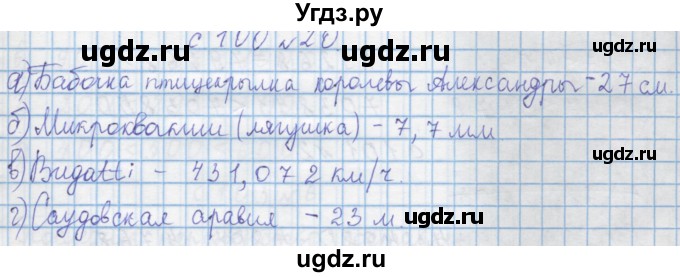 Угдз.ру
с 100 №20
а) Бабочка птицекрылка королевы Александры - 27 см.
б) Микроквакши (лягушка) - 7,7 мм
в) Bugatti - 431,072 км/ч.
г) Саудовская аравия - 23 м.
©ugdz.ru ©ugdz.ru ©ugdz.ru
©ugdz.ru ©ugdz.ru
ugdz.ru ugdz.ru ugdz.ru
©ugdz.ru ©ugdz.ru